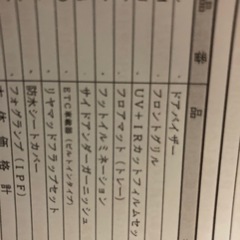 品番
品
ドアバイザー
フロントグリル
UV+IRカットフィルムセッ
フロアマット(トレー)
フットイルミネーション
サイドアンダーガーニッシュ
ETC車載器(ビルトインタイプ)
リヤマッドフラップセット
防水シートカバー
フォグランプ(IPF)
本体価格計